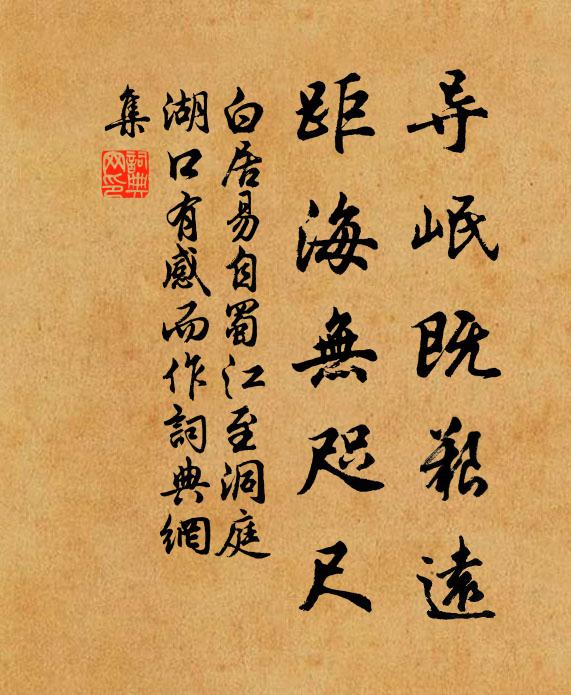 导岷既艱遠
距海無咫尺
白居易自蜀江至洞庭
湖口有感而作詞典網
集
詞典
网印